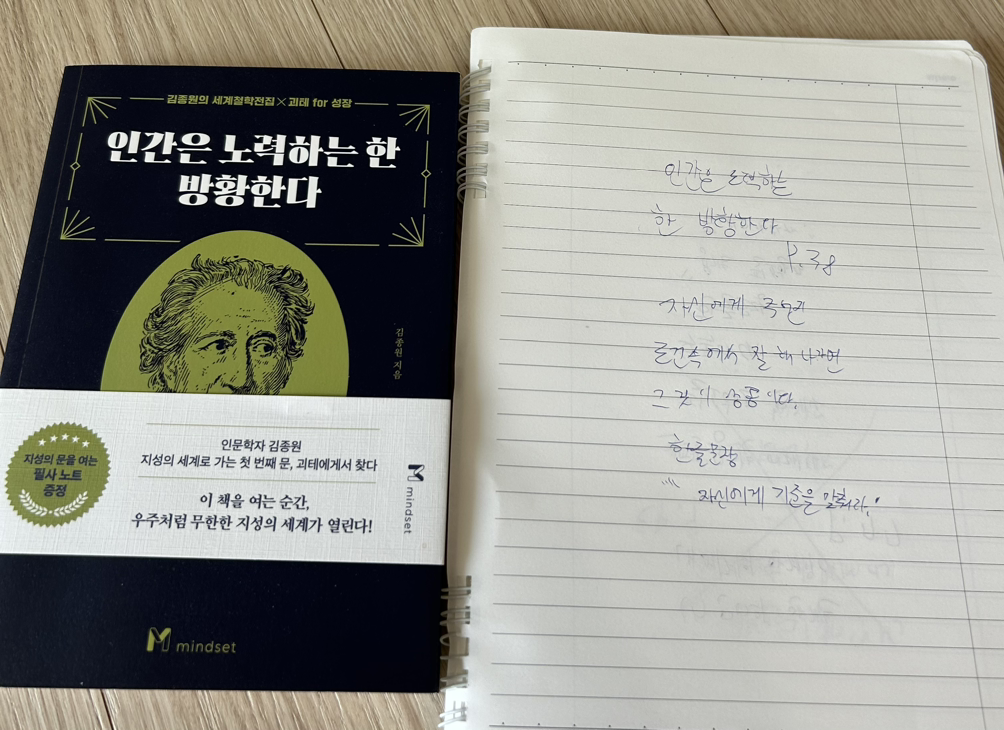 김종원의 세계철학전집×괴테 for 성장
인간은 노력하는 한
방황한다
김종원 지음
지성의 문을 여는
필사 노트
증정
인문학자 김종원
지성의 세계로 가는 첫 번째 문, 괴테에게서 찾다
이 책을 여는 순간,
우주처럼 무한한 지성의 세계가 열린다!
mindset
mindset
인간은 노력하는
한 방황한다
P.38
자신에게 주어진
조건속에서 잘 해 나가면
그것이 성공이다.
한줄문장
자신에게 기준을 맞춰라.